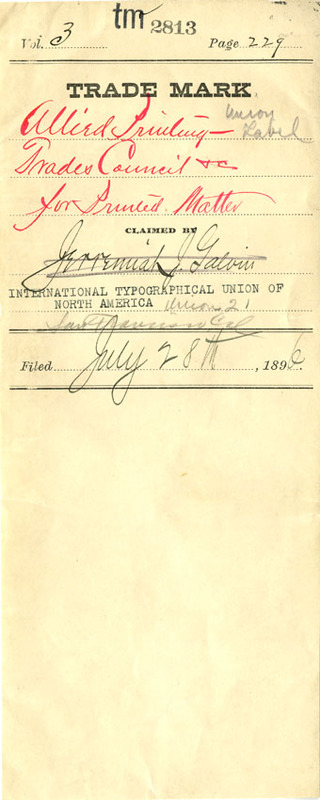 tm 2813
Vol. 3 Page 229
TRADE MARK
Union
Label
Allied Printing
Trades Council &c
for Printed Matter
CLAIMED BY
Jeremiah J. Galvin
INTERNATIONAL TYPOGRAPHICAL UNION OF
NORTH AMERICA Union 21
San Francisco Cal
Filed July 28th, 1896